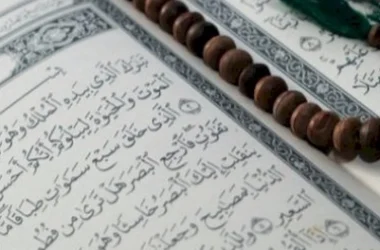 تَبَٰرَكَ ٱلَّذِى بِيَدِهِ ٱلْمُلْكُ وَهُوَ
ٱلْمَوْتَ وَٱلْحَيَوٰةَ لِيَبْلُوَكُمْ أَيُّكُمْ أَحْسَنُ
ٱلَّذِى خَلَقَ سَبْعَ سَمَٰوَٰتٍ طِبَاقًا مَّا
تَفَٰوُتٍ فَٱرْجِعِ ٱلْبَصَرَ هَلْ تَرَىٰ مِن
يَنقَلِبْ إِلَيْكَ ٱلْبَصَرُ خَاسِئًا وَهُوَ
ٱلدُّنْيَا بِمَصَٰبِيحَ وَجَعَلْ
ٱلسَّعِيرِ